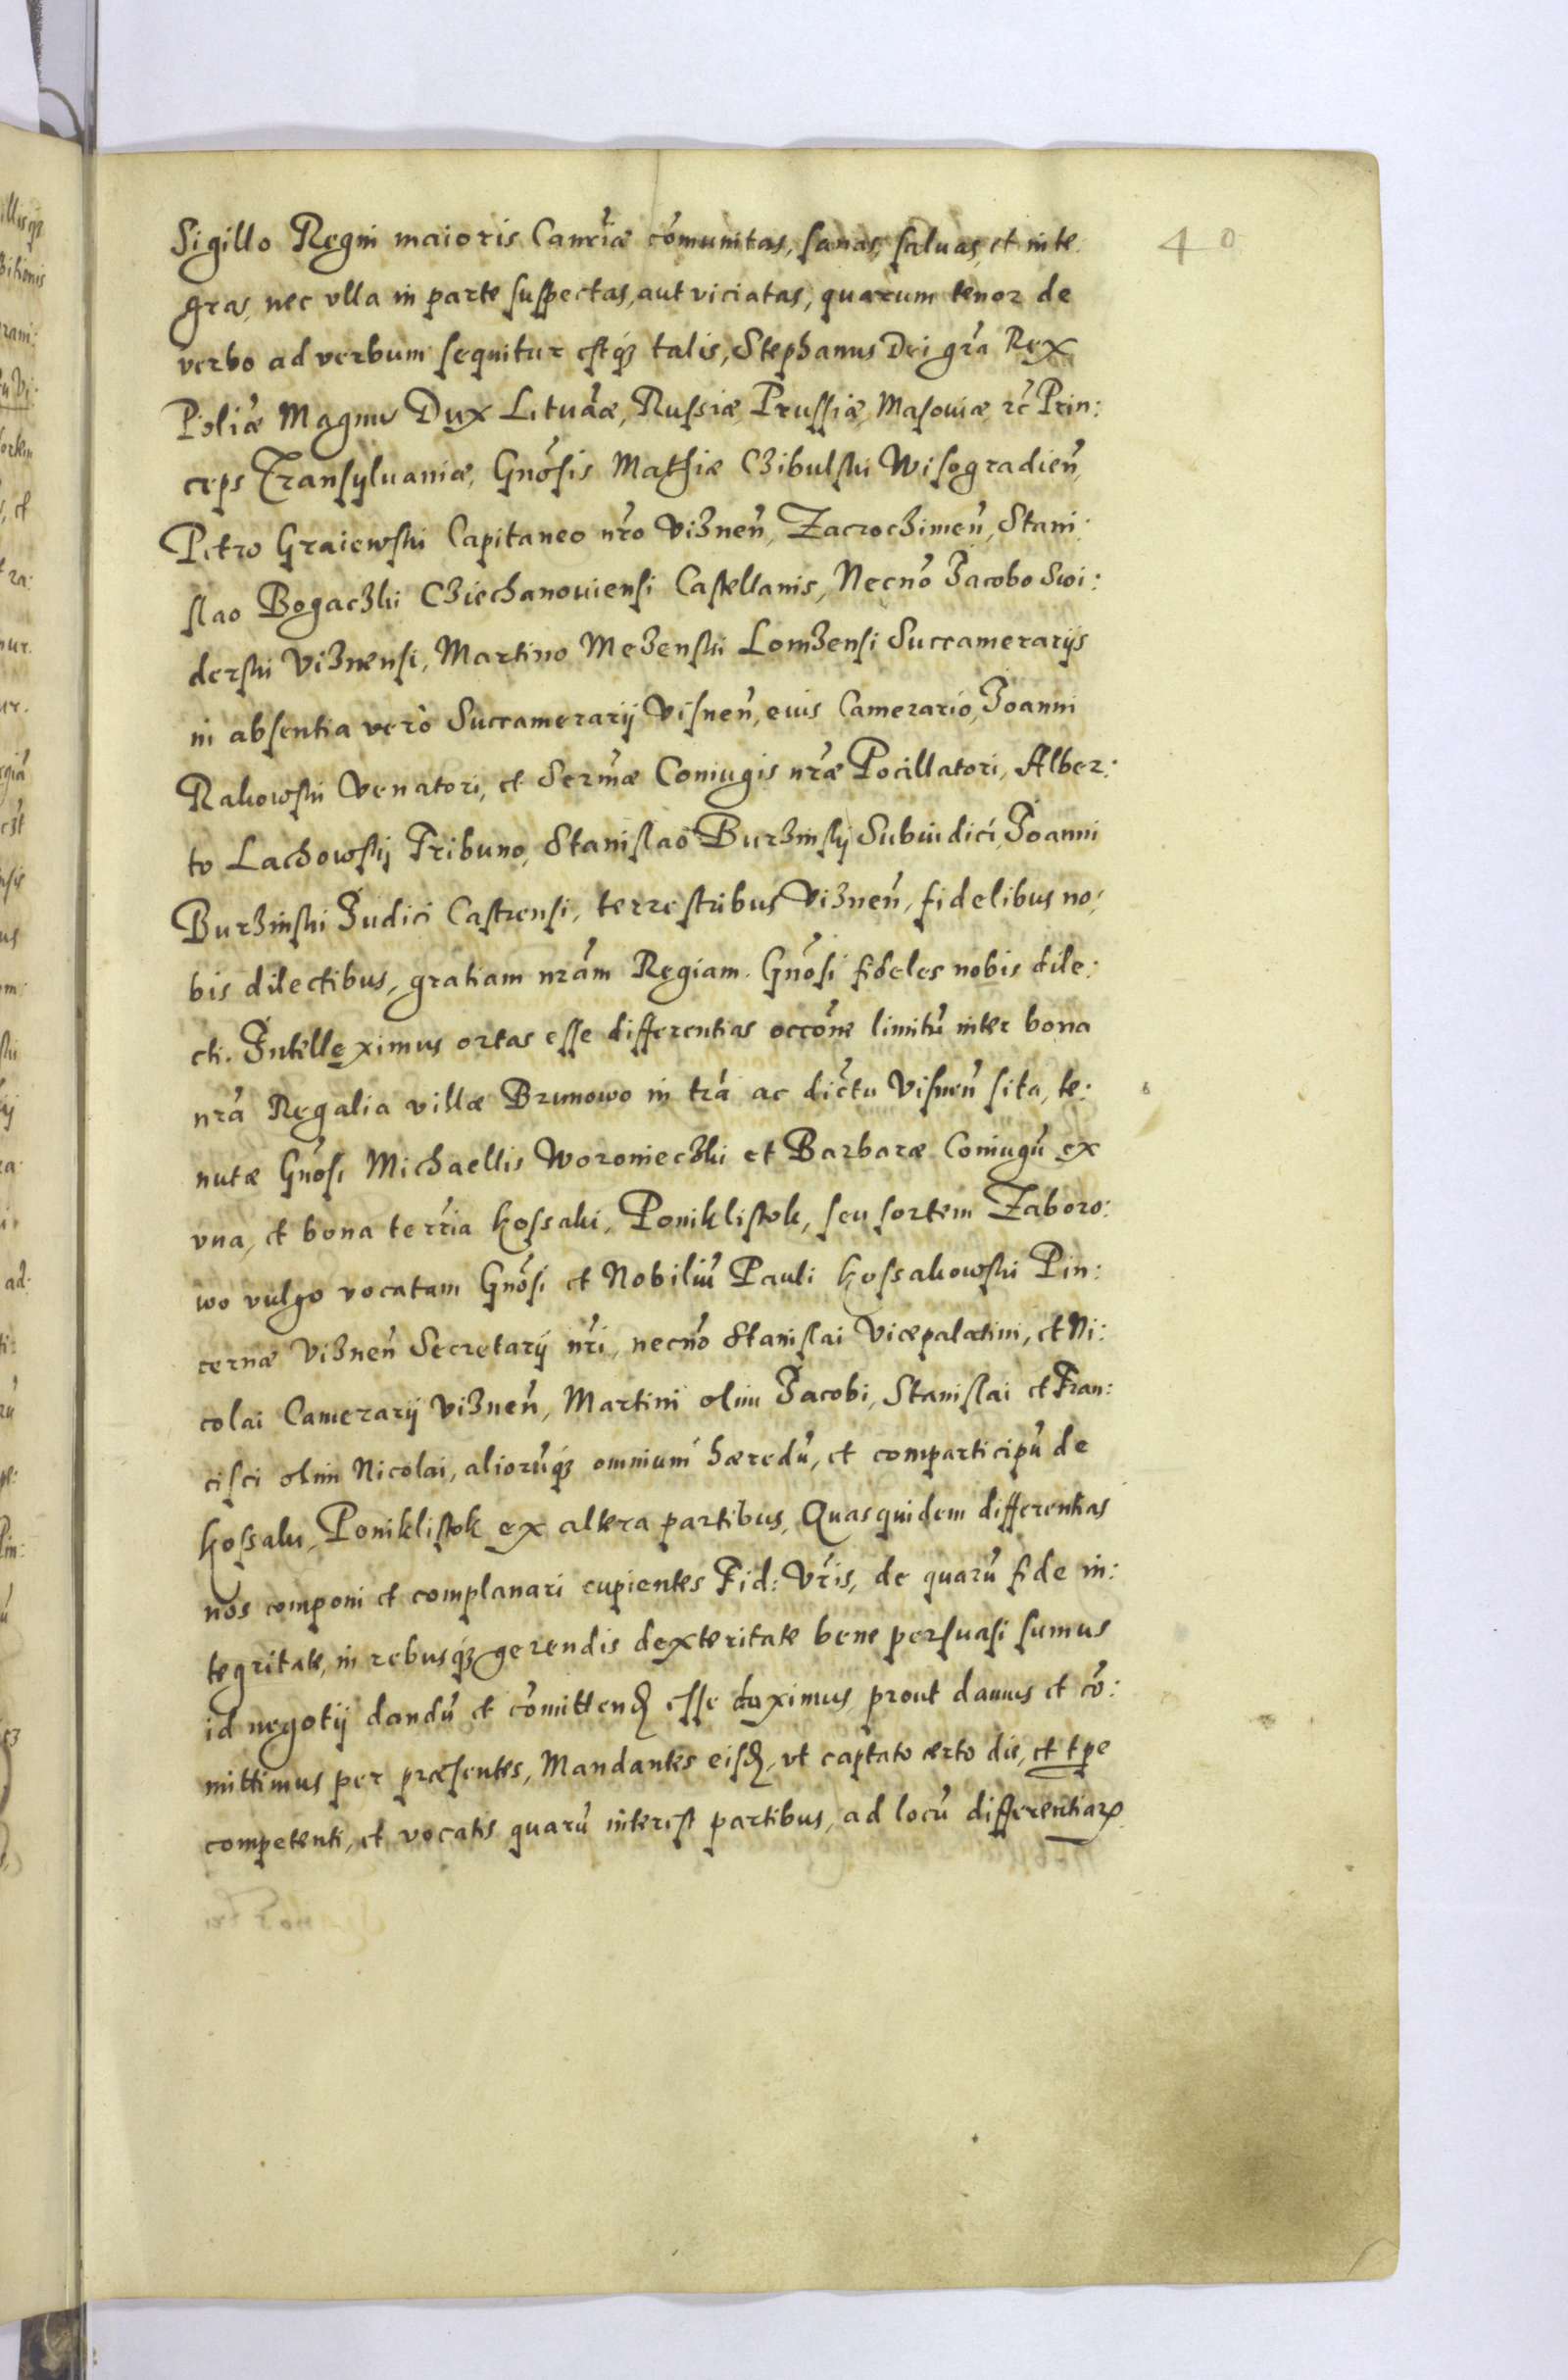 40
Sigillo Regni maioris Canc͠riæ co͠munitas, sanas, saluas, et inte
gras, nec vlla in parte suspectas, aut viciatas, quarum tenor de
verbo ad verbum sequitur estqꜣ talis, Stephanus Dei gr͠a Rex
Poliæ Magnus Dux Lituãæ, Russiæ, Prussiæ, Masouiæ, ꝛc̃ Prin:
ceps Transyluaniæ, Gno͠sis Mathiæ Czibulski Wisogradien͠,
Petro Graiewski Capitaneo nr͠o Viznen͠, Zacroczimen͠, Stani:
slao Bogaczki Cziechanouiensi Castellanis, Necno͠ Jacobo Swi:
derski Viznensi, Martino Mezenski Lomzensi Succamerarijs
in absentia vero Succamerarij Visnen͠, eius Camerario, Joanni
Rakowski Venatori, et Serm͠æ Coniugis nr͠æ Pocillatori, Alber:
to Lachowskj Tribuno, Stanislao Burzinskj Subiudici, Joanni
Burzinski Judici Castrensi, terrestribus Viznen͠, fidelibus no:
bis dilectibus, gratiam nra͠m Regiam. Gno͠si fideles nobis dile:
cti. Intelleximus ortas esse differentias occo͠ne limitu͠ inter bona
nr͠a Regalia villæ Brunowo in tr͠a ac dic͠tu Visnen͠ sita, te:
nutæ Gno͠si Michaellis Woronieczki et Barbaræ Coniugu͠ ex
vna, et bona terr͠ia Kossaki, Poniklistok, seu sortem Zaboro:
wo vulgo vocatam Gno͠si et Nobiliu͠ Pauli Kossakowski Pin:
cernæ Viznen͠ Secretarij nr͠i, necno͠ Stanislai Vicepalatini, et Ni:
colai Camerarij Viznen͠, Martini olim Jacobi, Stanislai et Fran:
cisci olim Nicolai, alioru͠qꜣ omnium hæredu͠, et comparticipu͠ de
Kossaki, Poniklistok ex altera partibus, Quasquidem differentias
nos componi et complanari cupientes Fid: Vr͠is, de quaru͠ fide in:
tegritate, in rebusqꜣ gerendis dexteritate bene persuasi sumus
id negotij dandu͠ et co͠mittenꝺ esse duximus prout damus et co͠:
mittimus per præsentes, Mandantes eisꝺ, vt captato certo die, et tp͠e
competenti, et vocatis quaru͠ interest partibus, ad locu͠ differentiaꝝ